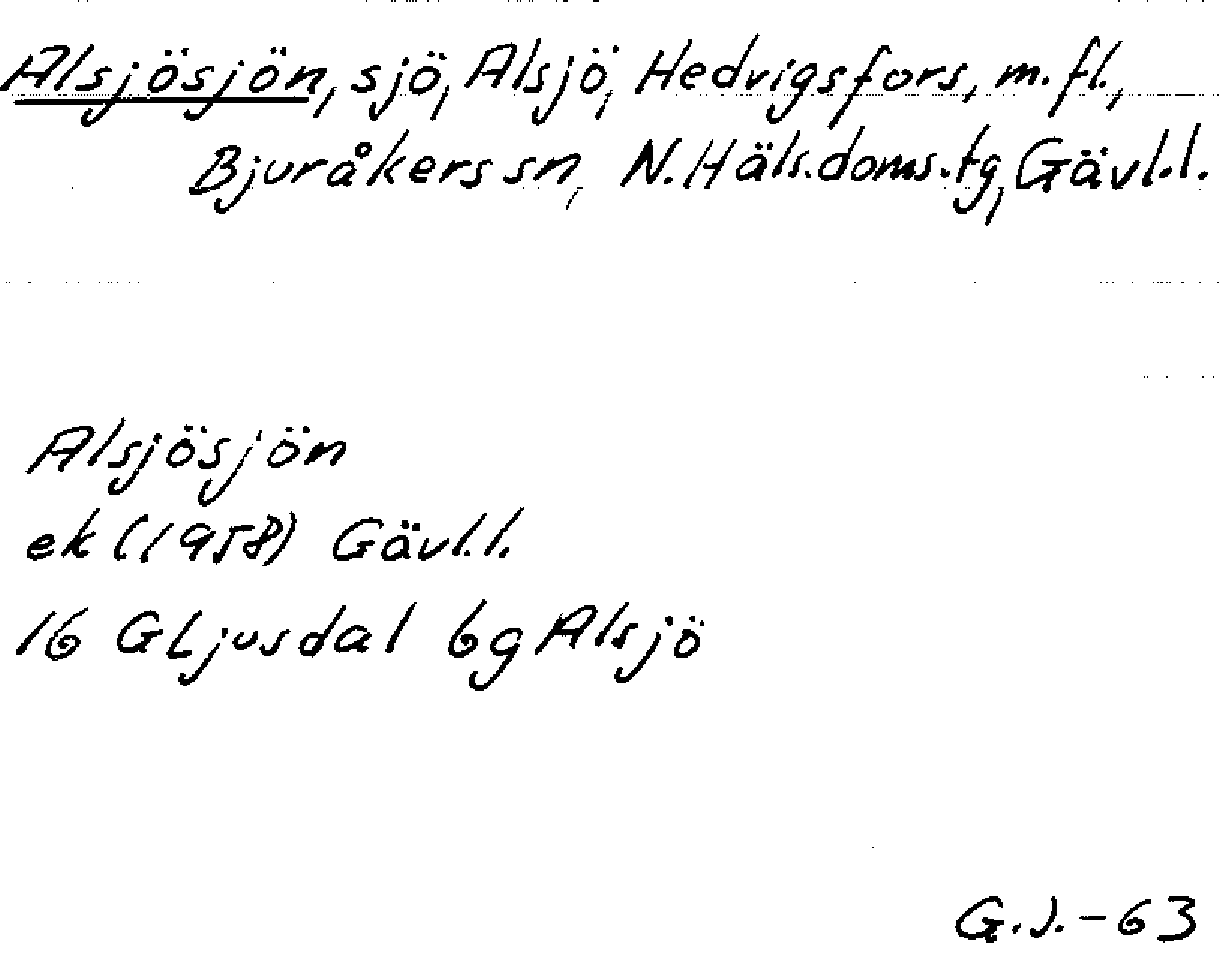 Alsjösjön, sjö, Alsjö, Hedvigsfors, m.fl.,
Bjuråkers sn, N.Häls.doms.tg, Gävl.l.
Alsjösjön
ek (1958) Gävl.l.
16 G Ljusdal 6g Alsjö
G.J.-63